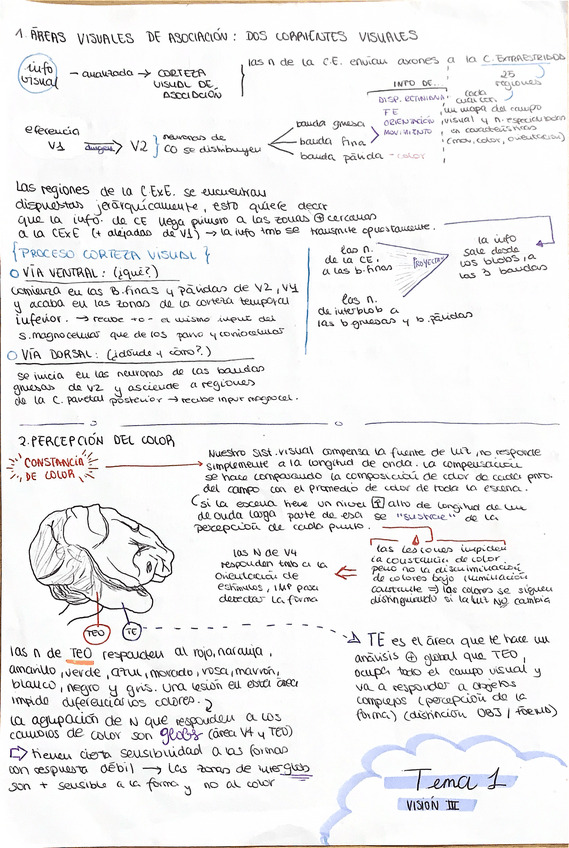 1. ÁREAS VISUALES DE ASOCIACIÓN: DOS CORRIENTES VISUALES
info visual → analizada → CORTEZA VISUAL DE ASOCIACIÓN
las n de la C.E. envían axones a la C. EXTRAESTRIADA
25 regiones
cada cual con
un mapa del campo
visual y n. especializadas
en características
(mov, color, orientación)
INFO DE.
DISP. RETINIANA
FE
ORIENTACIÓN
MOVIMIENTO
eferencia
V1 → V2 } neuronas de
CO se distribuyen
banda gruesa
banda fina
banda pálida - color
Las regiones de la CExE. se encuentran
dispuestas jerárquicamente, esto quiere decir
que la info. de CE llega primero a las zonas ⊕ cercanas
a la CExE (+ alejadas de V1) → la info tmb se transmite opuestamente.
{PROCESO CORTEZA VISUAL}
VÍA VENTRAL: (¿qué?)
comienza en las B. finas y pálidas de V2, V4
y acaba en las zonas de la corteza temporal
inferior. → recibe +o- el mismo input del
s. magnocelular que de los parvo y coniocelular
VÍA DORSAL: (¿dónde y cómo?)
se inicia en las neuronas de las bandas
gruesas de V2 y asciende a regiones
de la C. parietal posterior → recibe input magnocel.
las n.
de la CE,
a las b. finas
PROYECTAN
las n.
de interblob a
las b. gruesas y b. pálidas
la info
sale desde
los blobs, a
las 3 bandas
2. PERCEPCIÓN DEL COLOR
CONSTANCIA DE COLOR
Nuestro sist. visual compensa la fuente de luz, no responde
simplemente a la longitud de onda. La compensación
se hace comparando la composición de color de cada pnto.
del campo con el promedio de color de toda la escena.
(si la escena tiene un nivel ↑ alto de longitud de luz
de onda larga parte de esa se "sustrae" de la
percepción de cada punto.
las lesiones impiden
la constancia de color,
pero no la discriminación
de colores bajo iluminación
constante ⇒ los colores se siguen
distinguiendo si la luz NO cambia
las N de V4
responden tmb a la
orientación de
estímulos, IMP para
detectar la forma
TEO TE
las n de TEO responden al rojo, naranja,
amarillo, verde, azul, morado, rosa, marrón,
blanco, negro y gris. Una lesión en esta área
impide diferenciar los colores.
la agrupación de N que responden a los
cambios de color son globs (área V4 y TEO)
⇨ tienen cierta sensibilidad a las formas
con respuesta débil → las zonas de interglobs
son + sensible a la forma y no al color
TE es el área que te hace un
análisis ⊕ global que TEO,
ocupa todo el campo visual y
va a responder a objetos
complejos (percepción de la
forma) (distinción OBJ / FONDO)
Tema 1
VISIÓN III